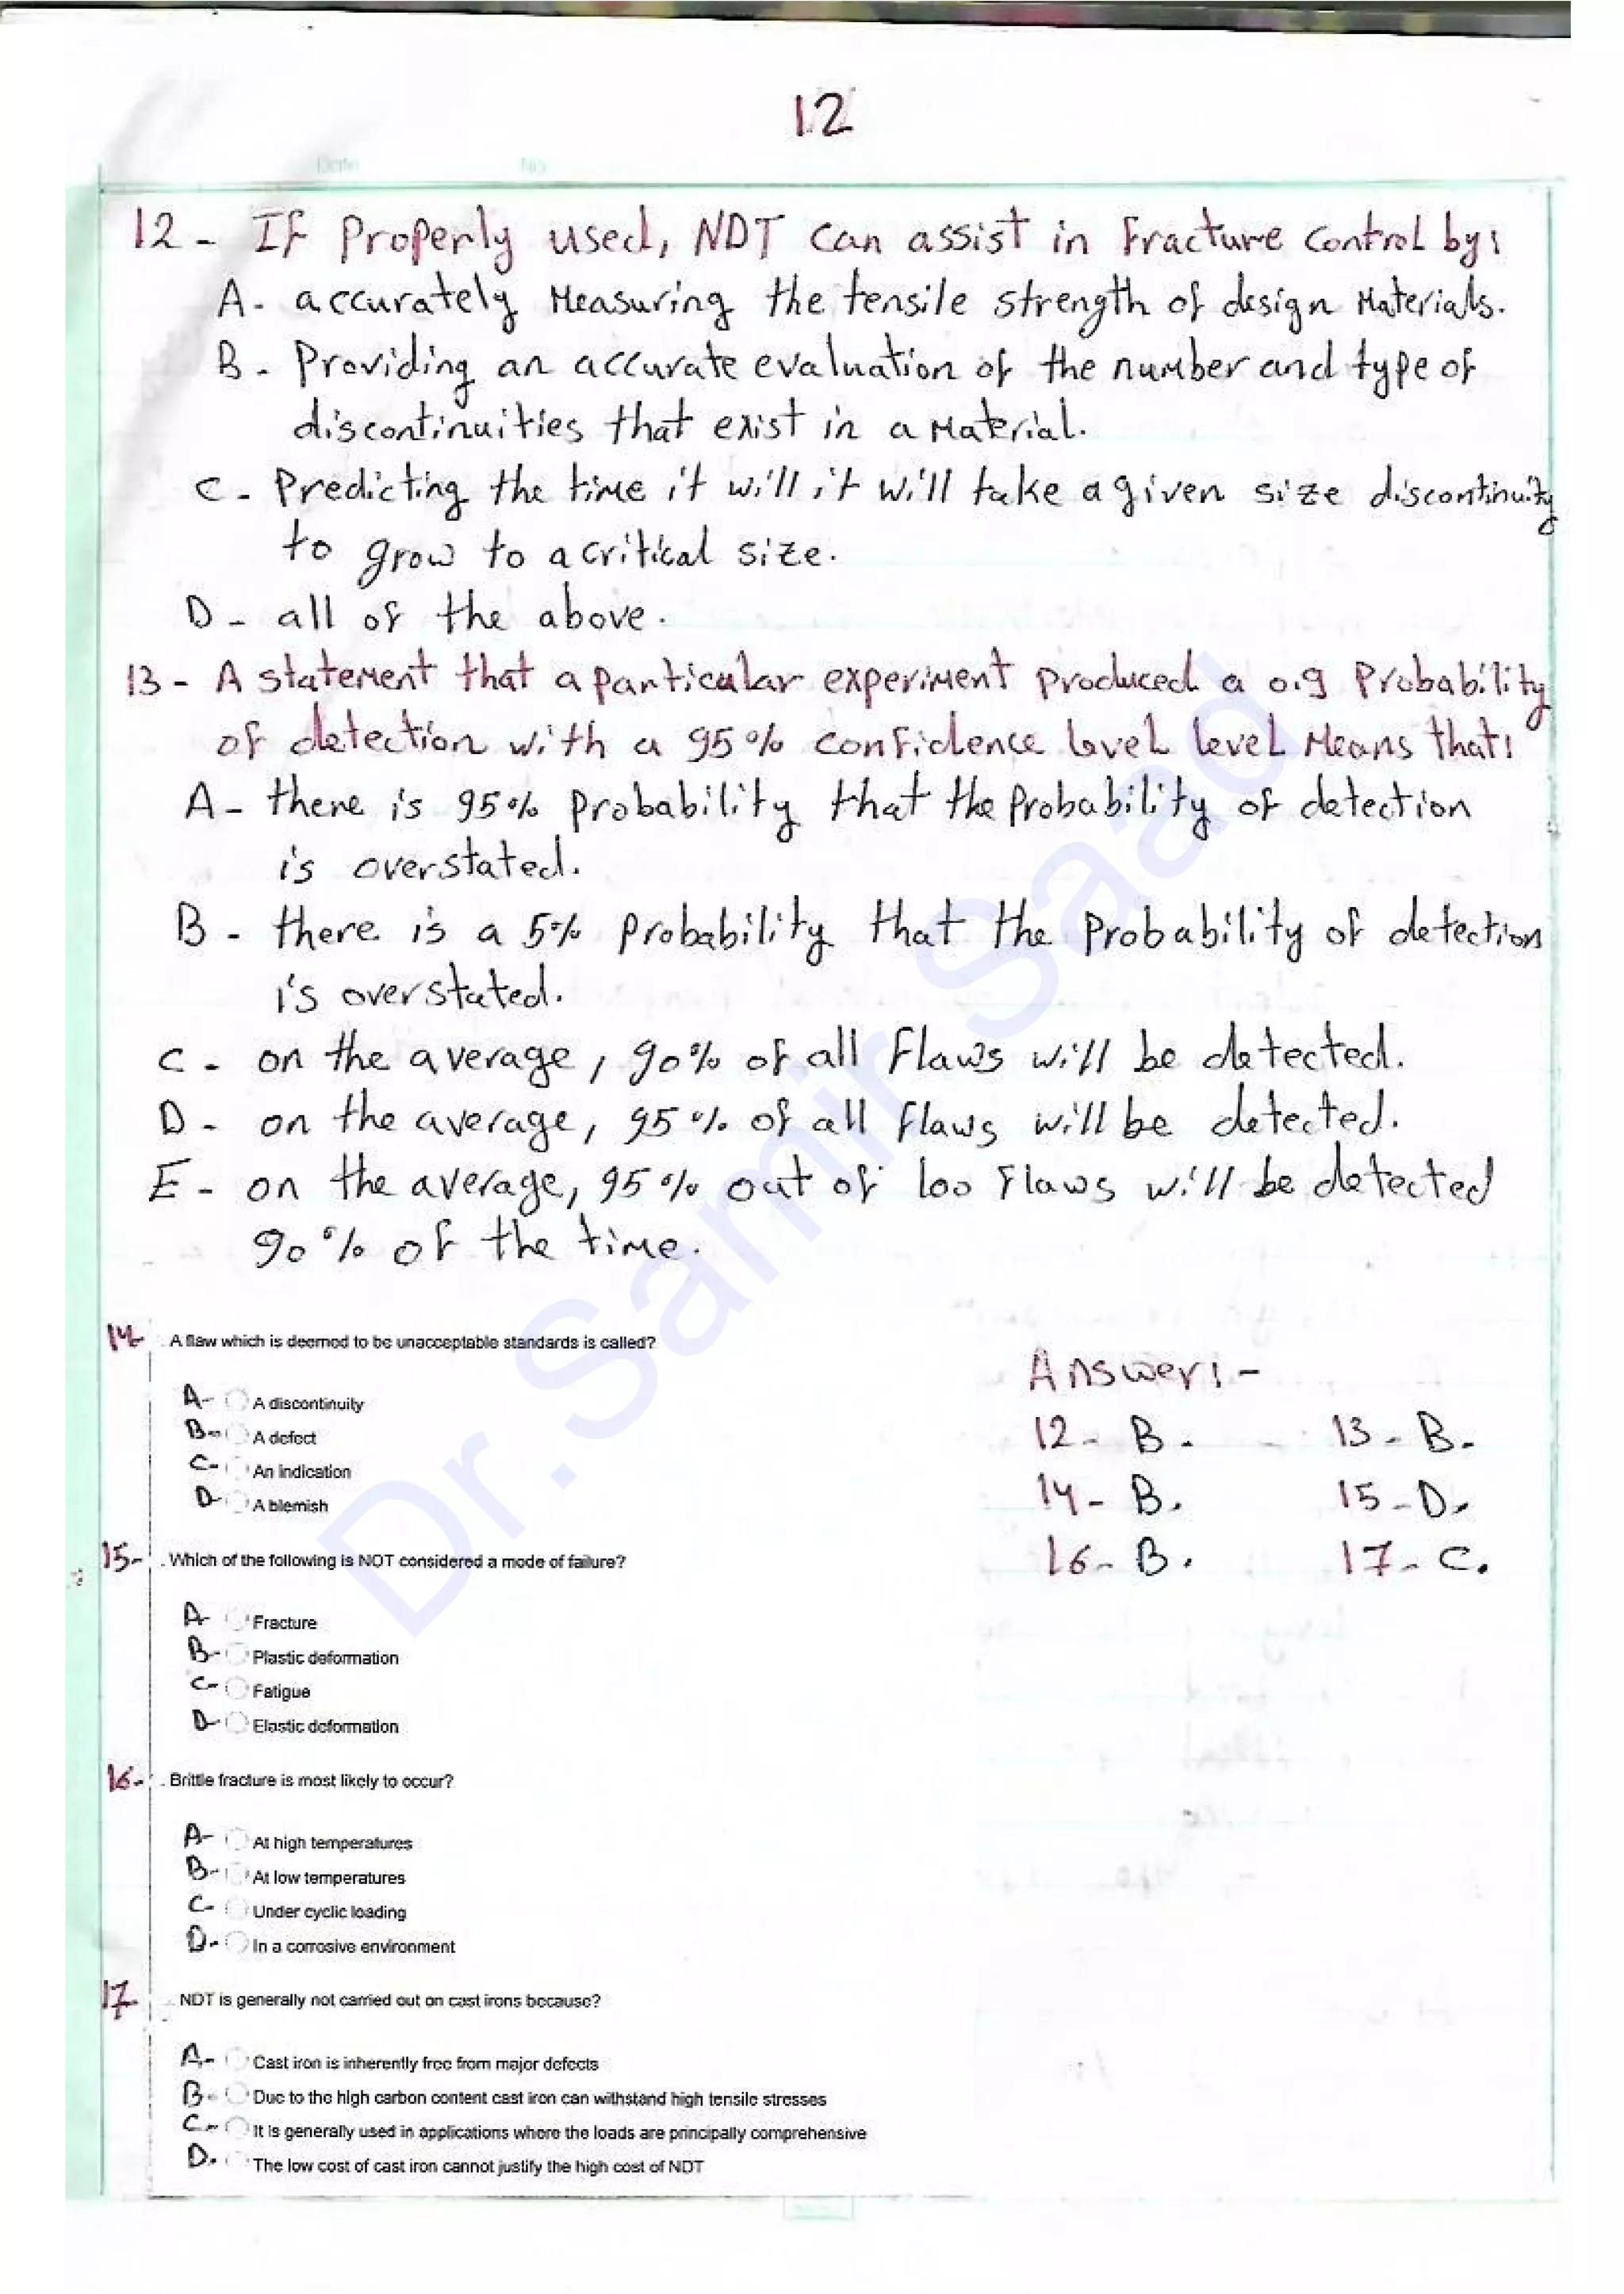 12
Date No
12 - If Properly used, NDT can assist in Fracture Control by:
A - accurately Measuring the tensile strength of design Materials.
B - Providing an accurate evaluation of the number and type of
discontinuities that exist in a Material.
C - Predicting the time it will it will take a given size discontinuity
to grow to a critical size.
D - all of the above.
13 - A statement that a particular experiment produced a 0.9 Probability
of detection with a 95% confidence level level Means that:
A - there is 95% Probability that the Probability of detection
is overstated.
B - there is a 5% Probability that the Probability of detection
is overstated.
C - on the average, 90% of all Flaws will be detected.
D - on the average, 95% of all Flaws will be detected.
E - on the average, 95% out of 100 Flaws will be detected
90% of the time.
14 . A flaw which is deemed to be unacceptable standards is called?
A- A discontinuity
B- A defect
C- An indication
D- A blemish
Answer: -
12 - B. 13 - B.
14 - B. 15 - D.
16 - B. 17 - C.
15- . Which of the following is NOT considered a mode of failure?
A- Fracture
B- Plastic deformation
C- Fatigue
D- Elastic deformation
16- . Brittle fracture is most likely to occur?
A- At high temperatures
B- At low temperatures
C- Under cyclic loading
D- In a corrosive environment
17 . NDT is generally not carried out on cast irons because?
A- Cast iron is inherently free from major defects
B- Due to the high carbon content cast iron can withstand high tensile stresses
C- It is generally used in applications where the loads are principally comprehensive
D. The low cost of cast iron cannot justify the high cost of NDT
Dr. Samir Saad